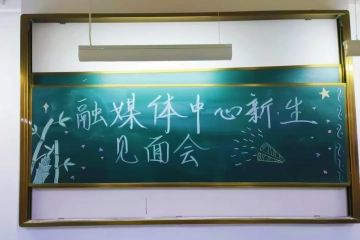 融媒体中心新生
见面会